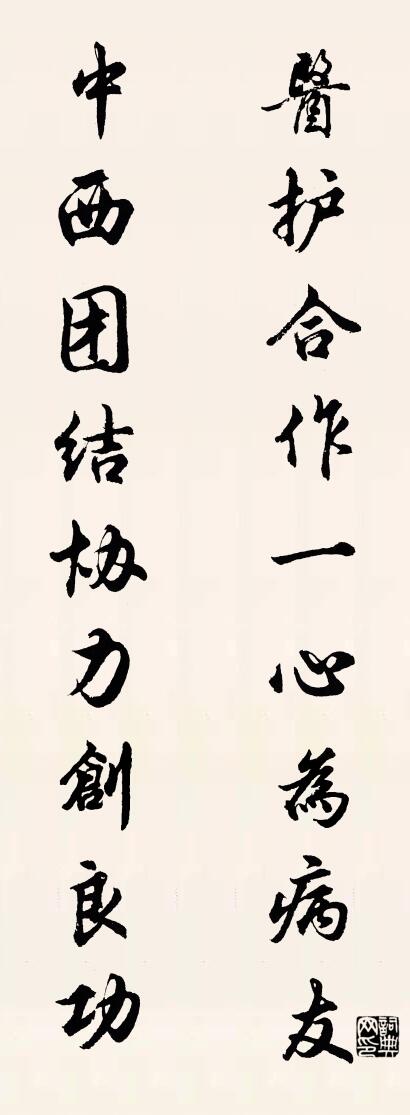 醫护合作一心為病友
中西团结协力創良功
詞典网印